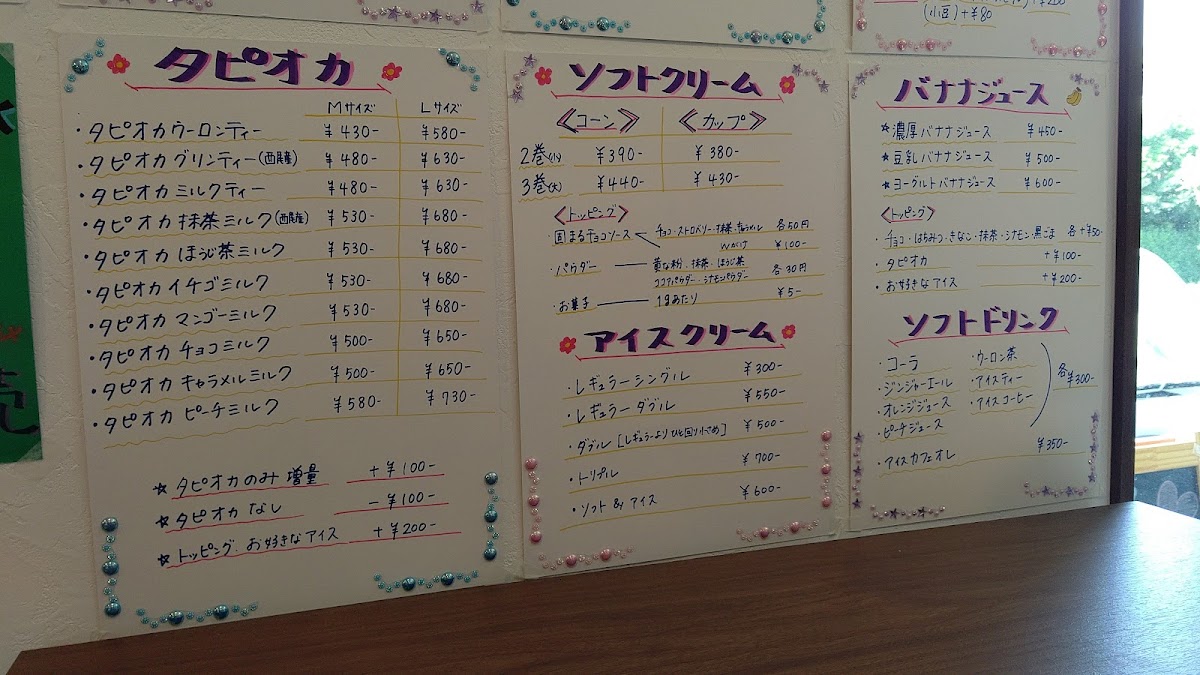 (小豆)+¥80
タピオカ
Mサイズ Lサイズ
・タピオカウーロンティー ¥430- ¥580-
・タピオカグリンティー(西尾産) ¥480- ¥630-
・タピオカミルクティー ¥480- ¥630-
・タピオカ抹茶ミルク(西尾産) ¥530- ¥680-
・タピオカほうじ茶ミルク ¥530- ¥680-
・タピオカイチゴミルク ¥530- ¥680-
・タピオカマンゴーミルク ¥530- ¥680-
・タピオカチョコミルク ¥500- ¥650-
・タピオカキャラメルミルク ¥500- ¥650-
・タピオカピーチミルク ¥580- ¥730-
☆タピオカのみ増量 +¥100-
☆タピオカなし -¥100-
☆トッピング お好きなアイス +¥200-
ソフトクリーム
《コーン》 《カップ》
2巻(小) ¥390- ¥380-
3巻(大) ¥440- ¥430-
<トッピング>
・固まるチョコソース チョコ・ストロベリー・抹茶・キャラメル 各50円
Wがけ ¥100-
・パウダー 黄な粉・抹茶・ほうじ茶
ココアパウダー・シナモンパウダー 各30円
・お菓子 1gあたり ¥5-
アイスクリーム
・レギュラーシングル ¥300-
・レギュラーダブル ¥550-
・ダブル[レギュラーよりひと回り小さめ] ¥500-
・トリプル ¥700-
・ソフト&アイス ¥600-
バナナジュース
★濃厚バナナジュース ¥450-
★豆乳バナナジュース ¥500-
★ヨーグルトバナナジュース ¥600-
<トッピング>
・チョコ・はちみつ・きなこ・抹茶・シナモン・黒ごま 各+¥50-
・タピオカ +¥100-
・お好きなアイス +¥200-
ソフトドリンク
・コーラ ・ウーロン茶
・ジンジャーエール ・アイスティー 各¥300-
・オレンジジュース ・アイスコーヒー
・ピーチジュース
・アイスカフェオレ ¥350-